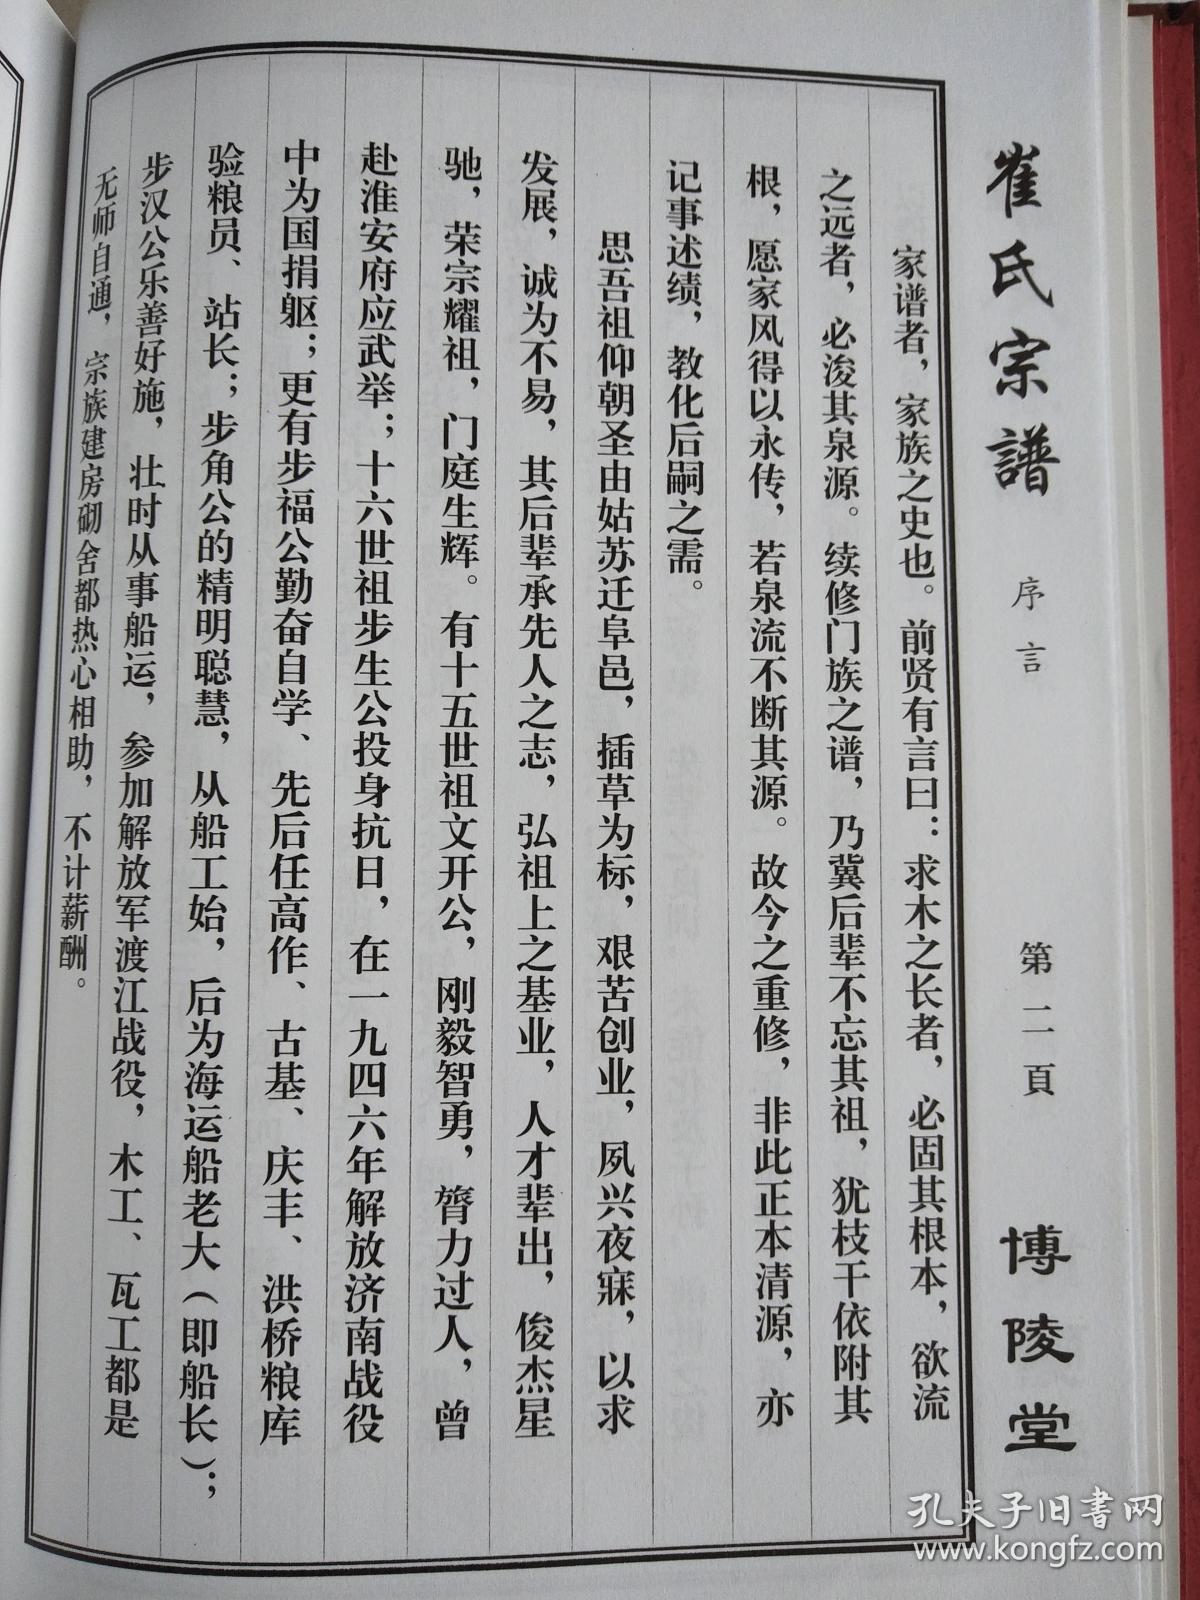 崔氏宗譜 序言 第二頁 博陵堂
家谱者，家族之史也。前贤有言曰：求木之长者，必固其根本，欲流
之远者，必浚其泉源。续修门族之谱，乃冀后辈不忘其祖，犹枝干依附其
根，愿家风得以永传，若泉流不断其源。故今之重修，非此正本清源，亦
记事述绩，教化后嗣之需。
思吾祖仰朝圣由姑苏迁阜邑，插草为标，艰苦创业，夙兴夜寐，以求
发展，诚为不易，其后辈承先人之志，弘祖上之基业，人才辈出，俊杰星
驰，荣宗耀祖，门庭生辉。有十五世祖文开公，刚毅智勇，膂力过人，曾
赴淮安府应武举；十六世祖步生公投身抗日，在一九四六年解放济南战役
中为国捐躯；更有步福公勤奋自学、先后任高作、古基、庆丰、洪桥粮库
验粮员、站长；步角公的精明聪慧，从船工始，后为海运船老大（即船长）；
步汉公乐善好施，壮时从事船运，参加解放军渡江战役，木工、瓦工都是
无师自通，宗族建房砌舍都热心相助，不计薪酬。
孔夫子旧书网
www.kongfz.com